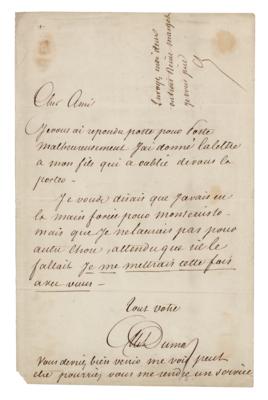 Cher Ami
Je vous ai repondu poste pour poste
malheureusement J'ai donné la lettre
a mon fils qui a oublié de vous la
porter –
Je vous disais que J'avais eu
la main forcée pour montecristo –
mais que Je ne l'aurais pas pour
autre chose, attendu que s'il le
fallait Je me mettrais cette fois
avec vous –
Tout votre
Al Dumas
Vous devriez bien venir me voir peut
etre pourriez vous me rendre un service
Envoyez moi deux
Reine margot
je vous prie